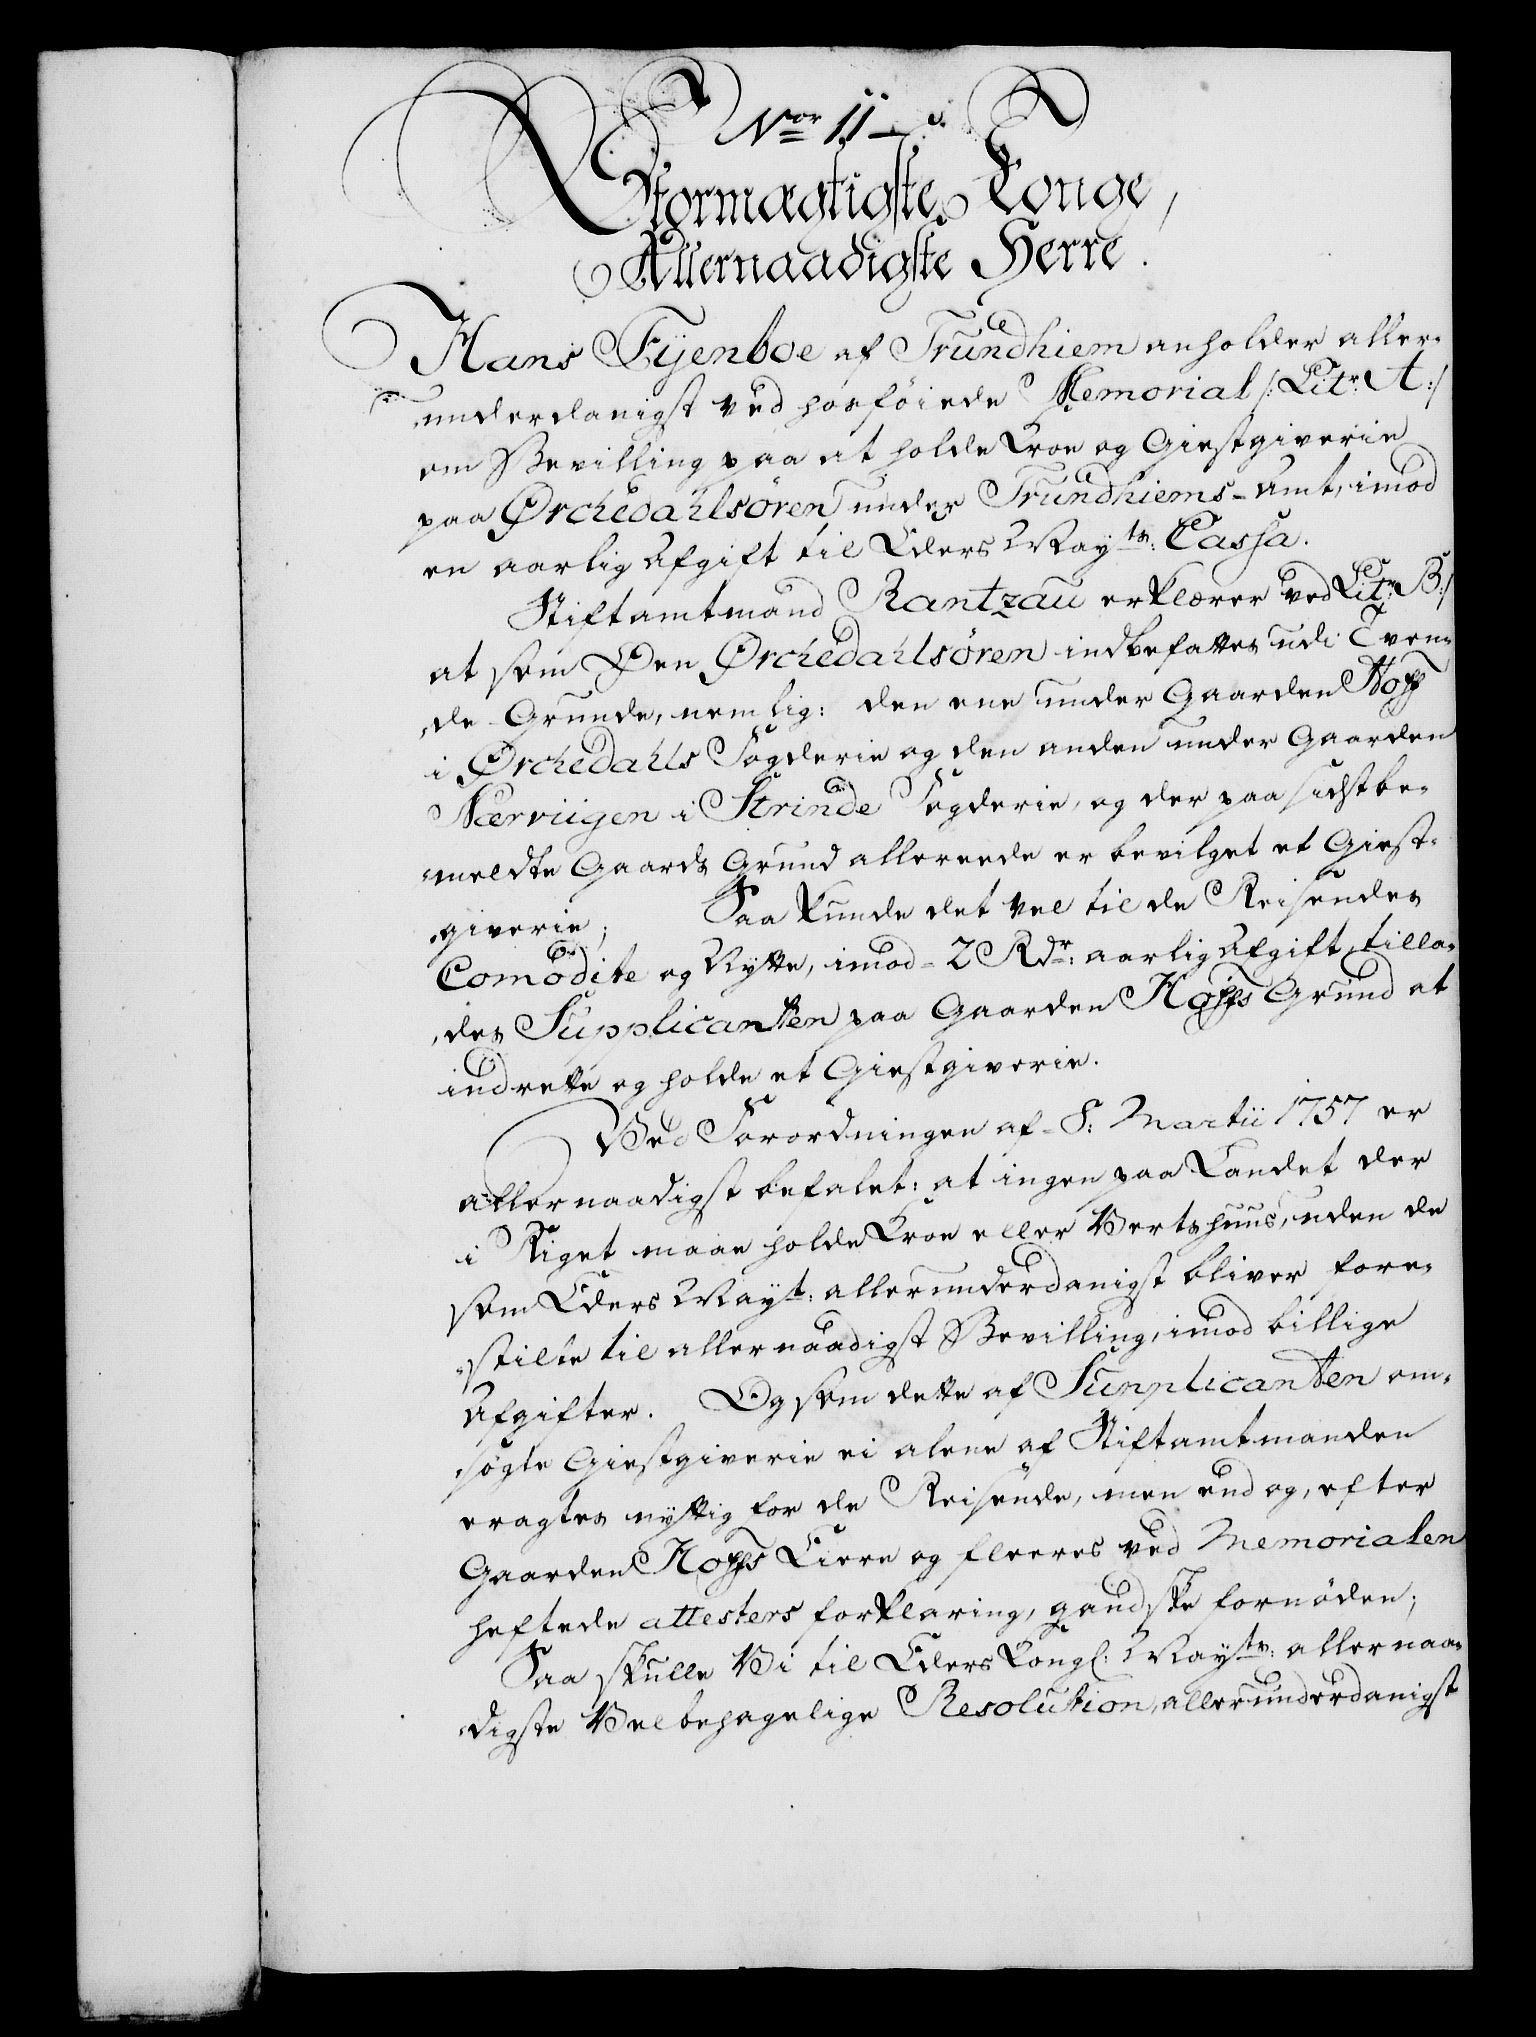 Nor 11
Stormægtigste Konge,
Allernaadigste Herre.
Hans Fyenboe af Trundhiem anholder aller-
underdanigst ved hosföiede Memorial /: Litr: A :/
om Bevilling paa at holde Kroe og Giestgiverie
paa Ørchedahlsøren under Trundhiems-Amt, imod
en aarlig Afgift til Eders Mayts: Cassa.
Stiftamtmand Rantzau erklærer ved Litr: B :/
at som Den Ørchedahlsøren indbefattes udi Tven-
de Grunde, nemlig: den ene under Gaarden Hoff
i Ørchedahls Fogderie og den anden under Gaarden
Nærviigen i Strinde Fogderie, og der paa sidstbe-
meldte Gaards Grund allereede er bevilget et Giest-
giverie; Saa kunde det vel til de Reisendes
Comodite og Nytte, imod 2 Rdr: aarlig Afgift, tilla-
des Supplicanten paa Gaarden Hoffs Grund at
indrette og holde et Giestgiverie.
Ved Forordningen af 8: Martii 1757 er
allernaadigst befalet: at ingen paa Landet der
i Riget maae holde Kroe eller Vertshuus, uden de
som Eders Mayt: allerunderdanigst bliver fore-
stilte til allernaadigst Bevilling, imod billige
Afgifter. Og som dette af Supplicanten om-
søgte Giestgiverie ei alene af Stiftamtmanden
eragtes nyttig for de Reisende, men end og, efter
Gaarden Hoffs Eiere og fleeres ved Memorialen
heftede attesters forklaring, gandske fornöden;
Saa skulle Vi til Eders Kongl: Mayts: allernaa-
digste Velbehagelige Resolution, allerunderdanigst